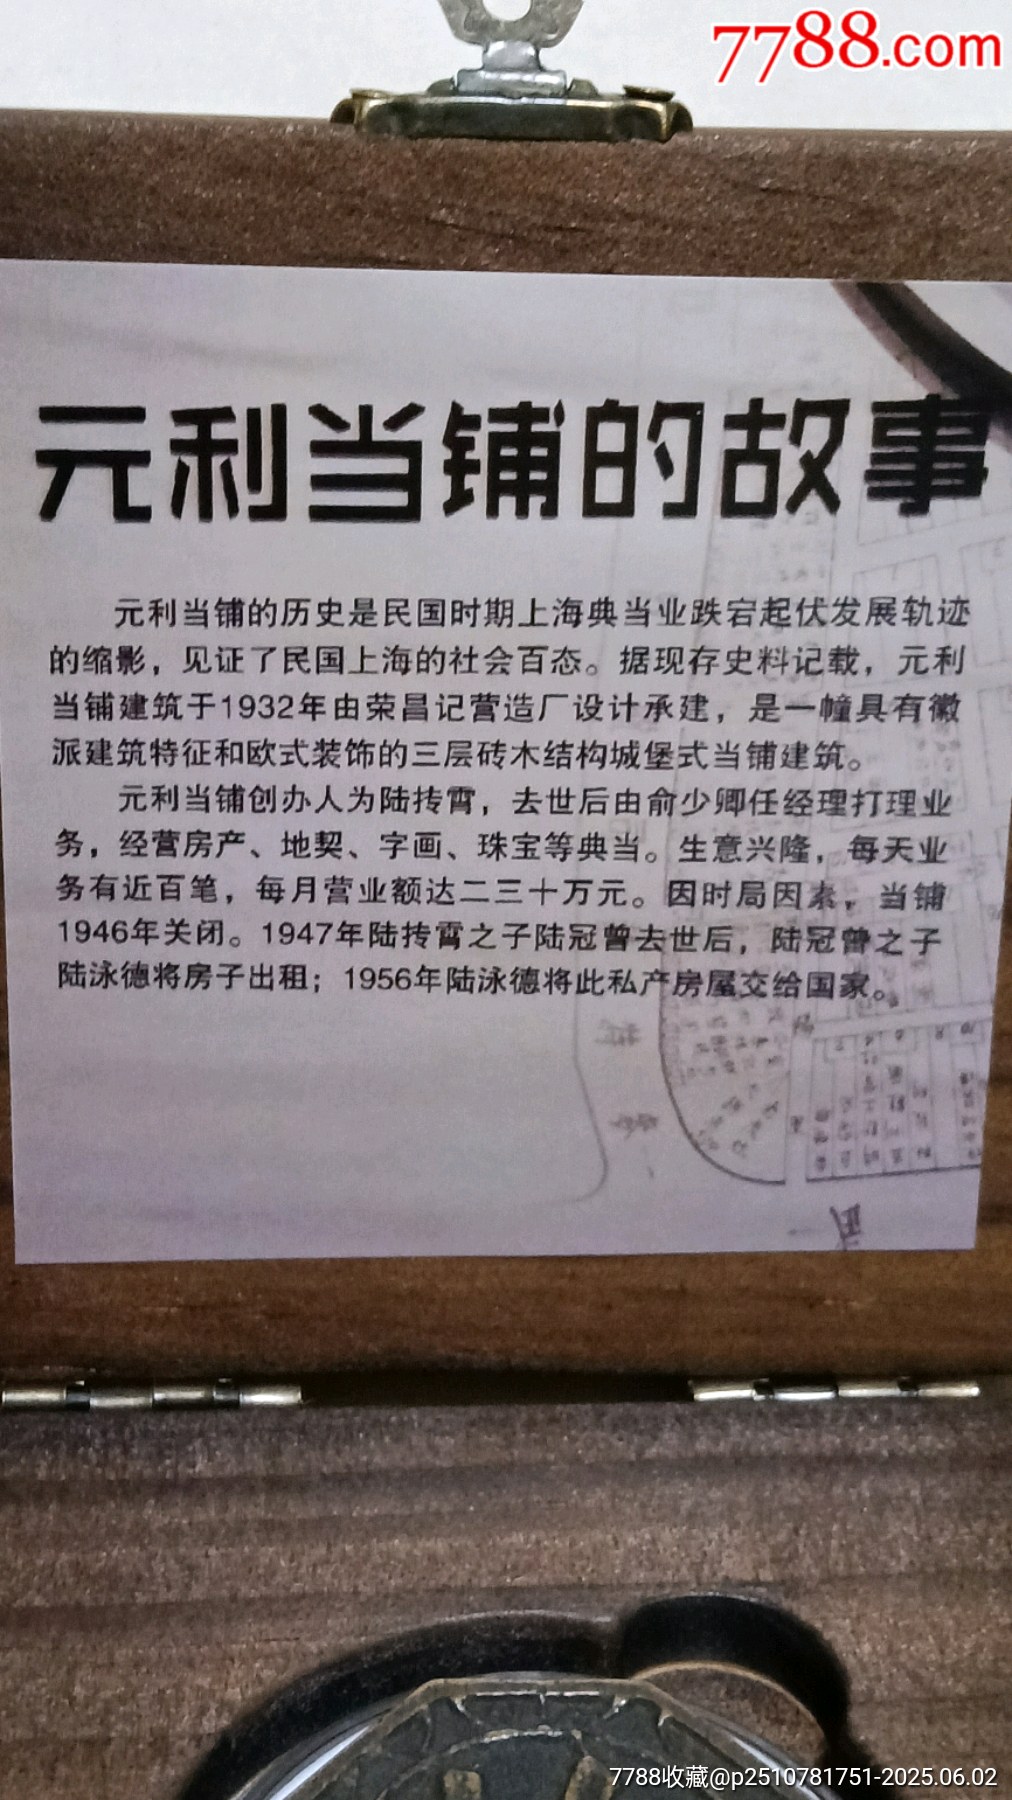 7788.com
元利当铺的故事
元利当铺的历史是民国时期上海典当业跌宕起伏发展轨迹
的缩影，见证了民国上海的社会百态。据现存史料记载，元利
当铺建筑于1932年由荣昌记营造厂设计承建，是一幢具有徽
派建筑特征和欧式装饰的三层砖木结构城堡式当铺建筑。
元利当铺创办人为陆抟霄，去世后由俞少卿任经理打理业
务，经营房产、地契、字画、珠宝等典当。生意兴隆，每天业
务有近百笔，每月营业额达二三十万元。因时局因素，当铺
1946年关闭。1947年陆抟霄之子陆冠曾去世后，陆冠曾之子
陆泳德将房子出租；1956年陆泳德将此私产房屋交给国家。
7788收藏@p2510781751-2025.06.02